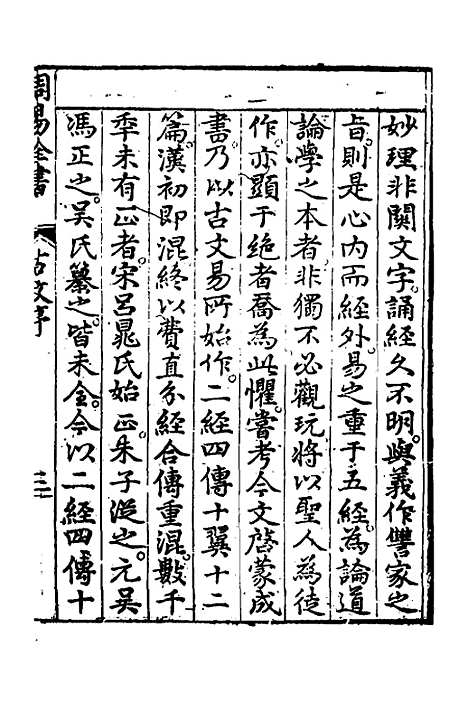 妙理非關文字。誦經久不明。與義作讐家之
旨。則是心内而經外。易之重于五經。為論道
論學之本者。非獨不必觀玩。將以聖人為徒
作。亦顯于絶者。喬為此懼。嘗考今文啓蒙成
書。乃以古文易所始作。二經四傳十翼十二
篇。漢初即混。終以費直分經合傳重混。數千
年未有正者。宋呂晁氏始正。朱子從之。元吳
馮正之。吴氏纂之。皆未全。今以二經四傳十
周易全書
古文序
三